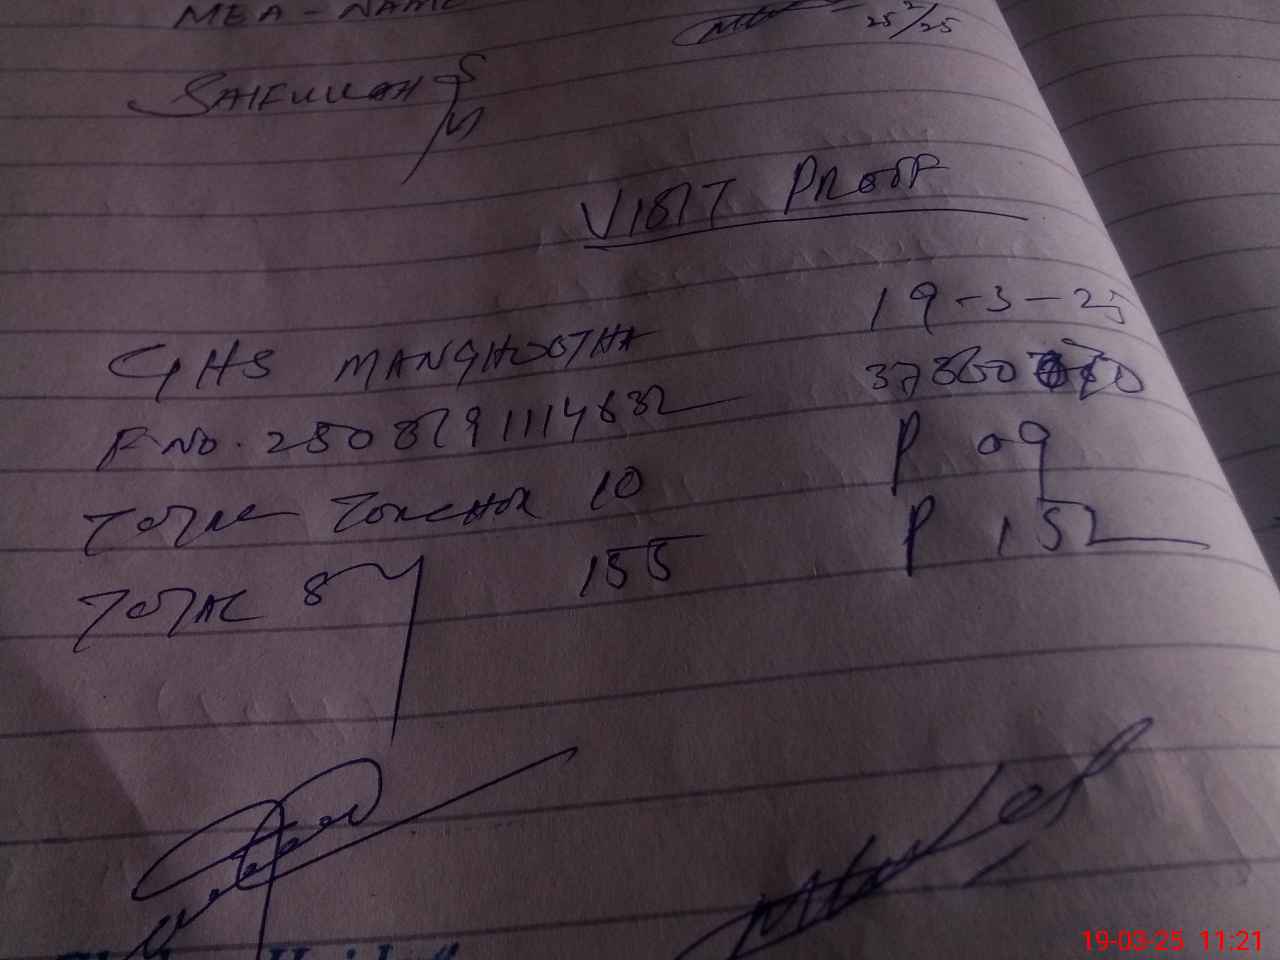 MEA - NAME
25/2/25
SAIFULLAH
VISIT PROOF
19-3-25
GHS MANGHOOTHA
37360
F No. 2808791114632
TOTAL TEACHER 10 P 09
TOTAL ST 155 P 152
19-03-25 11:21